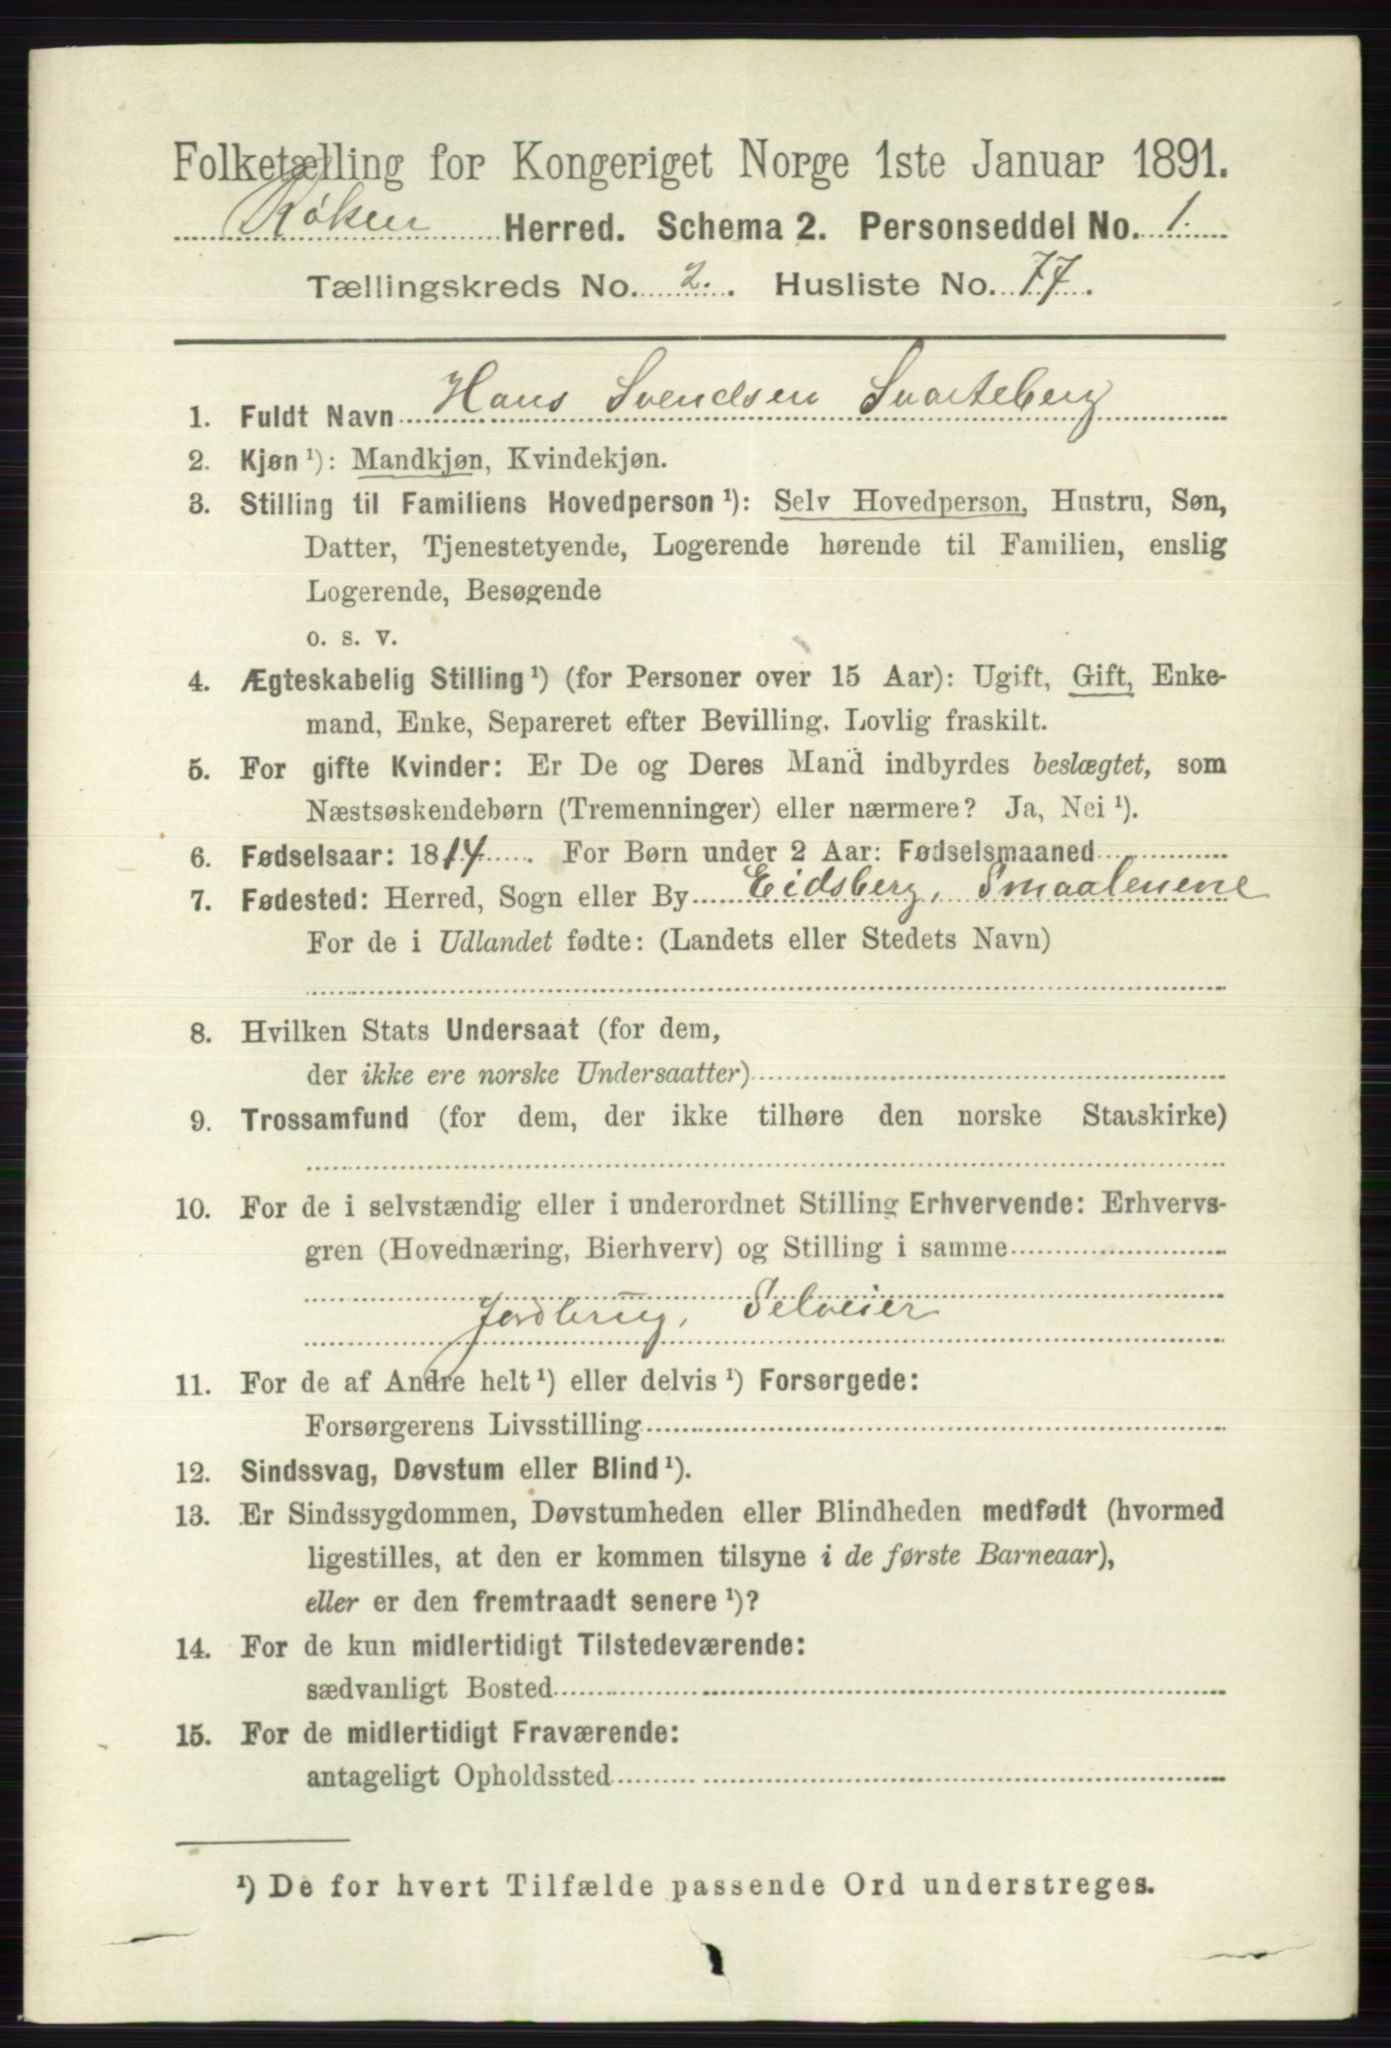 Folketælling for Kongeriget Norge 1ste Januar 1891.
Røken Herred. Schema 2. Personseddel No. 1.
Tællingskreds No. 2. Husliste No. 77.
1. Fuldt Navn Hans Svendsen Svarteberg
2. Kjøn ¹): Mandkjøn, Kvindekjøn.
3. Stilling til Familiens Hovedperson ¹): Selv Hovedperson, Hustru, Søn,
Datter, Tjenestetyende, Logerende hørende til Familien, enslig
Logerende, Besøgende
o. s. v.
4. Ægteskabelig Stilling ¹) (for Personer over 15 Aar): Ugift, Gift, Enke-
mand, Enke, Separeret efter Bevilling. Lovlig fraskilt.
5. For gifte Kvinder: Er De og Deres Mand indbyrdes beslægtet, som
Næstsøskendebørn (Tremenninger) eller nærmere? Ja, Nei ¹).
6. Fødselsaar: 1814. For Børn under 2 Aar: Fødselsmaaned
7. Fødested: Herred, Sogn eller By Eidsberg, Smaalenene
For de i Udlandet fødte: (Landets eller Stedets Navn)
8. Hvilken Stats Undersaat (for dem,
der ikke ere norske Undersaatter)
9. Trossamfund (for dem, der ikke tilhøre den norske Statskirke)
10. For de i selvstændig eller i underordnet Stilling Erhvervende: Erhvervs-
gren (Hovednæring, Bierhverv) og Stilling i samme
Jordbrug, Selveier
11. For de af Andre helt ¹) eller delvis ¹) Forsørgede:
Forsørgerens Livsstilling
12. Sindssvag, Døvstum eller Blind ¹).
13. Er Sindssygdommen, Døvstumheden eller Blindheden medfødt (hvormed
ligestilles, at den er kommen tilsyne i de første Barneaar),
eller er den fremtraadt senere ¹)?
14. For de kun midlertidigt Tilstedeværende:
sædvanligt Bosted
15. For de midlertidigt Fraværende:
antageligt Opholdssted
¹) De for hvert Tilfælde passende Ord understreges.